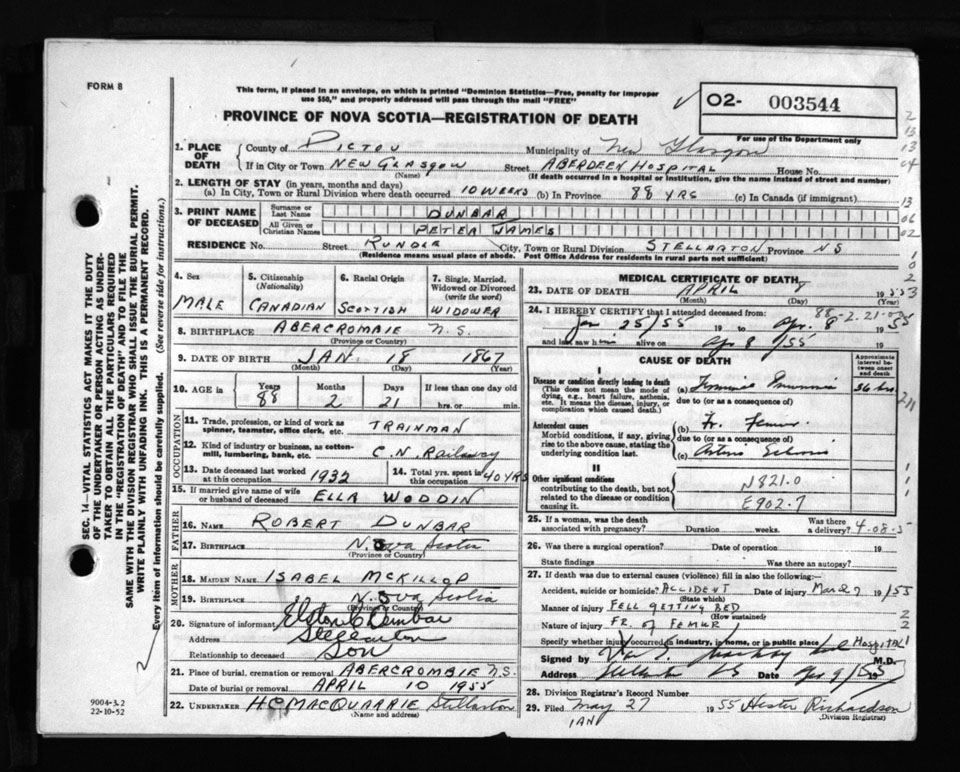 FORM 8
This form, if placed in an envelope, on which is printed "Dominion Statistics—Free, penalty for improper
use $50," and properly addressed will pass through the mail "FREE"
02- 003544
PROVINCE OF NOVA SCOTIA—REGISTRATION OF DEATH
For use of the Department only
1. PLACE OF DEATH
County of PICTOU Municipality of New Glasgow
If in City or Town NEW GLASGOW Street ABERDEEN HOSPITAL House No.
(Name) (If death occurred in a hospital or institution, give the name instead of street and number)
2. LENGTH OF STAY (in years, months and days)
(a) In City, Town or Rural Division where death occurred 10 WEEKS (b) In Province 88 YRS (c) In Canada (if immigrant)
3. PRINT NAME OF DECEASED
Surname or Last Name DUNBAR
All Given or Christian Names PETER JAMES
RESIDENCE No. Street City, Town or Rural Division STELLARTON Province NS
(Residence means usual place of abode. Post Office Address for residents in rural parts not sufficient)
4. Sex
MALE
5. Citizenship
(Nationality)
CANADIAN
6. Racial Origin
SCOTTISH
7. Single, Married, Widowed or Divorced
(write the word)
WIDOWER
8. BIRTHPLACE ABERCROMBIE N.S.
(Province or Country)
9. DATE OF BIRTH JAN. 18 1867
(Month) (Day) (Year)
10. AGE in
Years Months Days If less than one day old
88 2 21 hrs. or min.
OCCUPATION
11. Trade, profession, or kind of work as
spinner, teamster, office clerk, etc. TRAINMAN
12. Kind of industry or business, as cotton-
mill, lumbering, bank, etc. C.N. Railway
13. Date deceased last worked
at this occupation 1932
14. Total yrs. spent in
this occupation 40 YRS
15. If married give name of wife
or husband of deceased ELLA WODDIN
FATHER
16. NAME ROBERT DUNBAR
17. BIRTHPLACE Nova Scotia
(Province or Country)
MOTHER
18. MAIDEN NAME ISABEL McKILLOP
19. BIRTHPLACE Nova Scotia
(Province or Country)
20. Signature of informant Dunbar
Address Stellarton
Relationship to deceased Son
21. Place of burial, cremation or removal ABERCROMBIE N.S.
Date of burial or removal APRIL 10 1955
22. UNDERTAKER H.C. MACQUARRIE Stellarton
(Name and address)
MEDICAL CERTIFICATE OF DEATH
23. DATE OF DEATH APRIL 8 1955
(Month) (Day) (Year)
88-2-21
24. I HEREBY CERTIFY that I attended deceased from:
Jan 25/55 19 to Apr. 8 1955
and last saw him alive on Apr 8/55
CAUSE OF DEATH
Approximate interval between onset and death
I
Disease or condition directly leading to death
(This does not mean the mode of
dying, e.g., heart failure, asthenia,
etc. It means the disease, injury, or
complication which caused death.)
(a) 36 hrs
due to (or as a consequence of)
Antecedent causes
Morbid conditions, if any, giving
rise to the above cause, stating the
underlying condition last.
(b) Fr. Femur
due to (or as a consequence of)
(c)
II
Other significant conditions
contributing to the death, but not
related to the disease or condition
causing it.
N821.0
E902.7
25. If a woman, was the death
associated with pregnancy? Duration weeks. Was there
a delivery? 4-08-5
26. Was there a surgical operation? Date of operation 19
State findings Was there an autopsy?
27. If death was due to external causes (violence) fill in also the following:
Accident, suicide or homicide? ACCIDENT Date of injury 19/55
(State which)
Manner of injury FELL GETTING BED
(How sustained)
Nature of injury FR. OF FEMUR
Specify whether injury occurred in industry, in home, or in public place Hospital
Signed by M.D.
Address Date Apr 9/55 19
28. Division Registrar's Record Number
29. Filed May 27 1955 Hester Richardson
(Division Registrar)
SEC. 14—VITAL STATISTICS ACT MAKES IT THE DUTY
OF THE UNDERTAKER OR PERSON ACTING AS UNDER-
TAKER TO OBTAIN ALL THE PARTICULARS REQUIRED
IN THE "REGISTRATION OF DEATH" AND TO FILE THE
SAME WITH THE DIVISION REGISTRAR WHO SHALL ISSUE THE BURIAL PERMIT.
WRITE PLAINLY WITH UNFADING INK. THIS IS A PERMANENT RECORD.
Every item of information should be carefully supplied. (See reverse side for instructions.)
9004-3.2
22-10-52